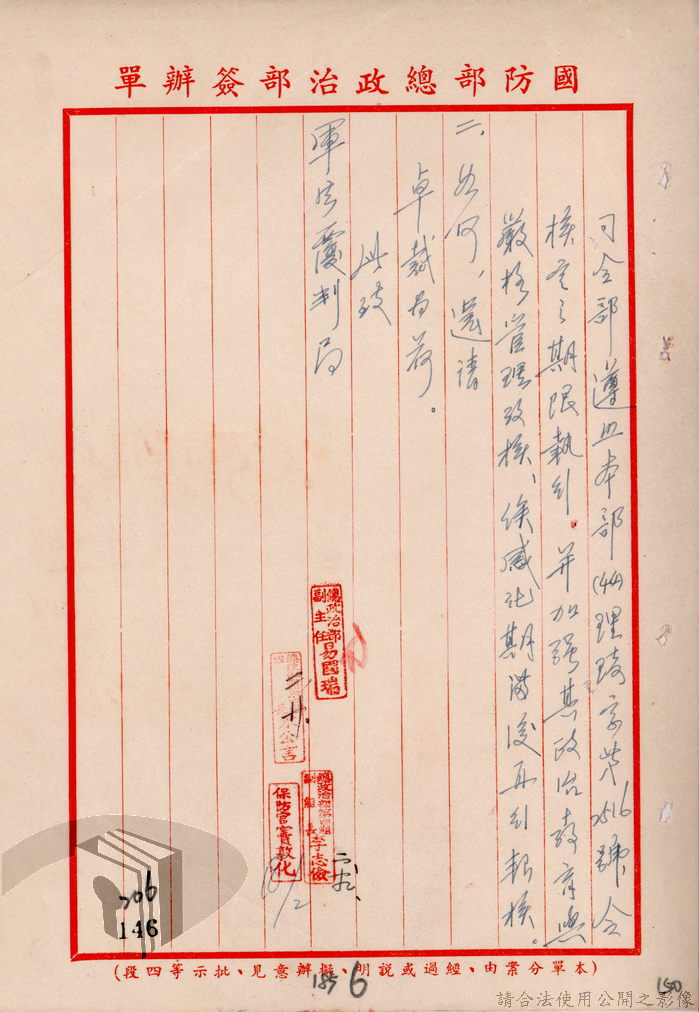 國防部總政治部簽辦單
司令部遵照本部(44)理琦字第2516號令
核定之期限執行。并加强其政治教育與
嚴格管理攷核、俟感化期滿後再行報核。
二、如何，還請
卓裁為荷。
此致
軍法覆判局
總政治部
副主任易國瑞
言
二、廿.
總政治部第四組
副組長李志儉
保防官竇敦化
206
146
(本單分案由、經過或說明、擬辦意見、批示等四段)
185
6
150
請合法使用公開之影像